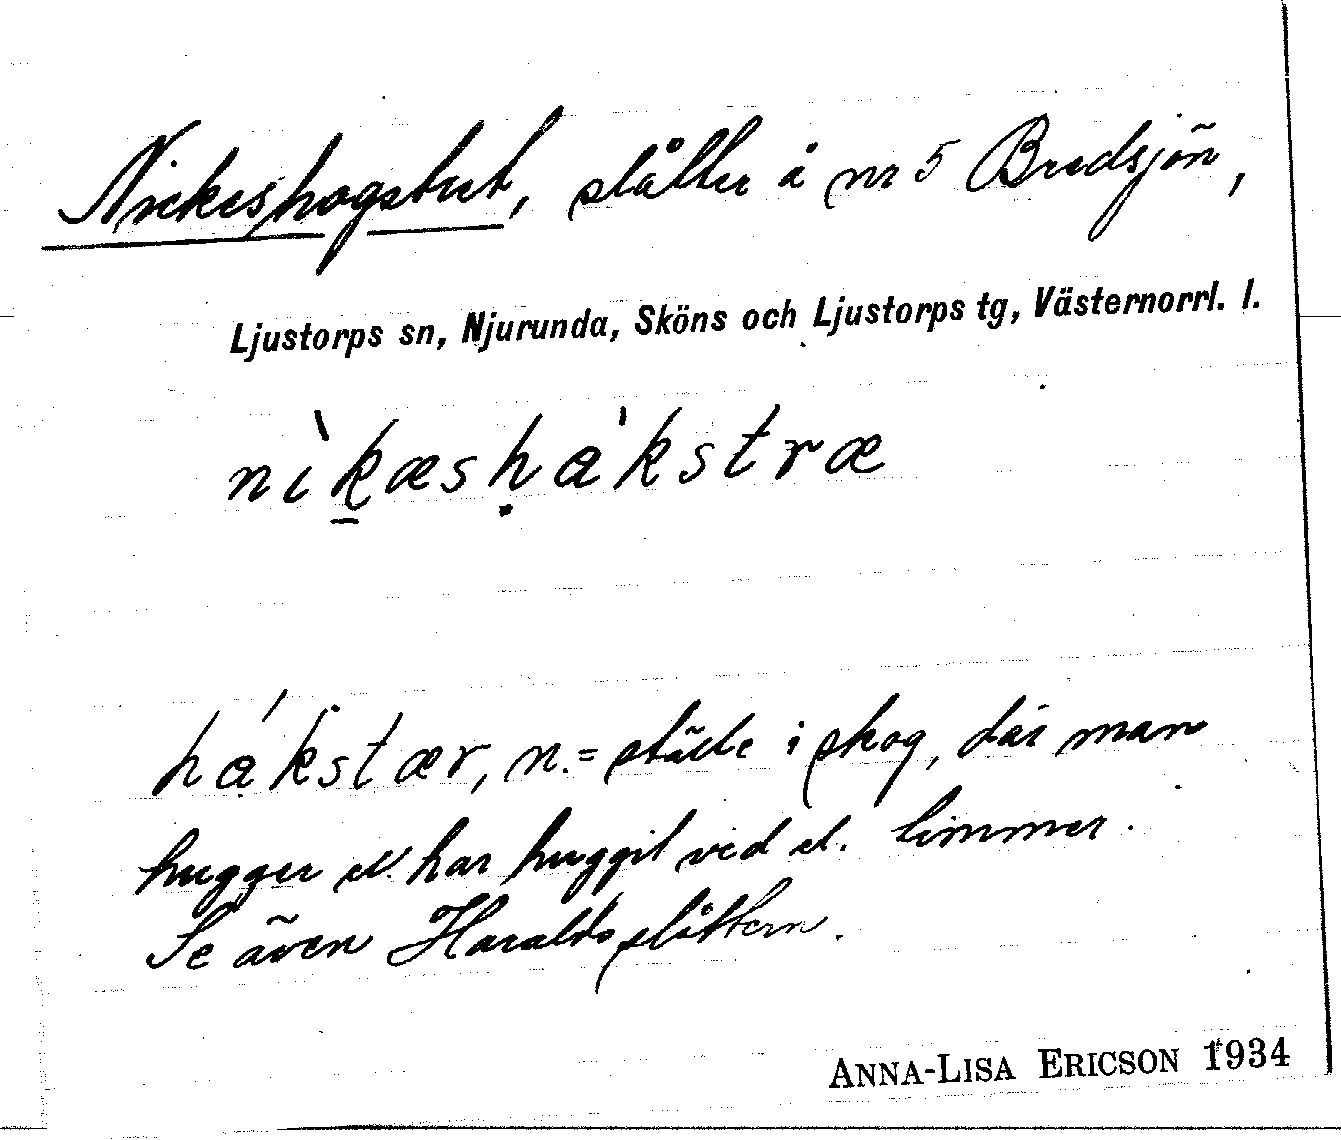 Nickeshogstret, slåtter å nr 5 Bredsjön,
Ljustorps sn, Njurunda, Sköns och Ljustorps tg, Västernorrl. l.
nìk̲æsḥa̍kstræ
hákstær, n. = ställe i skog, där man
hugger el. har huggit ved el. timmer.
Se även Haraldsslåttern.
ANNA-LISA ERICSON 1934